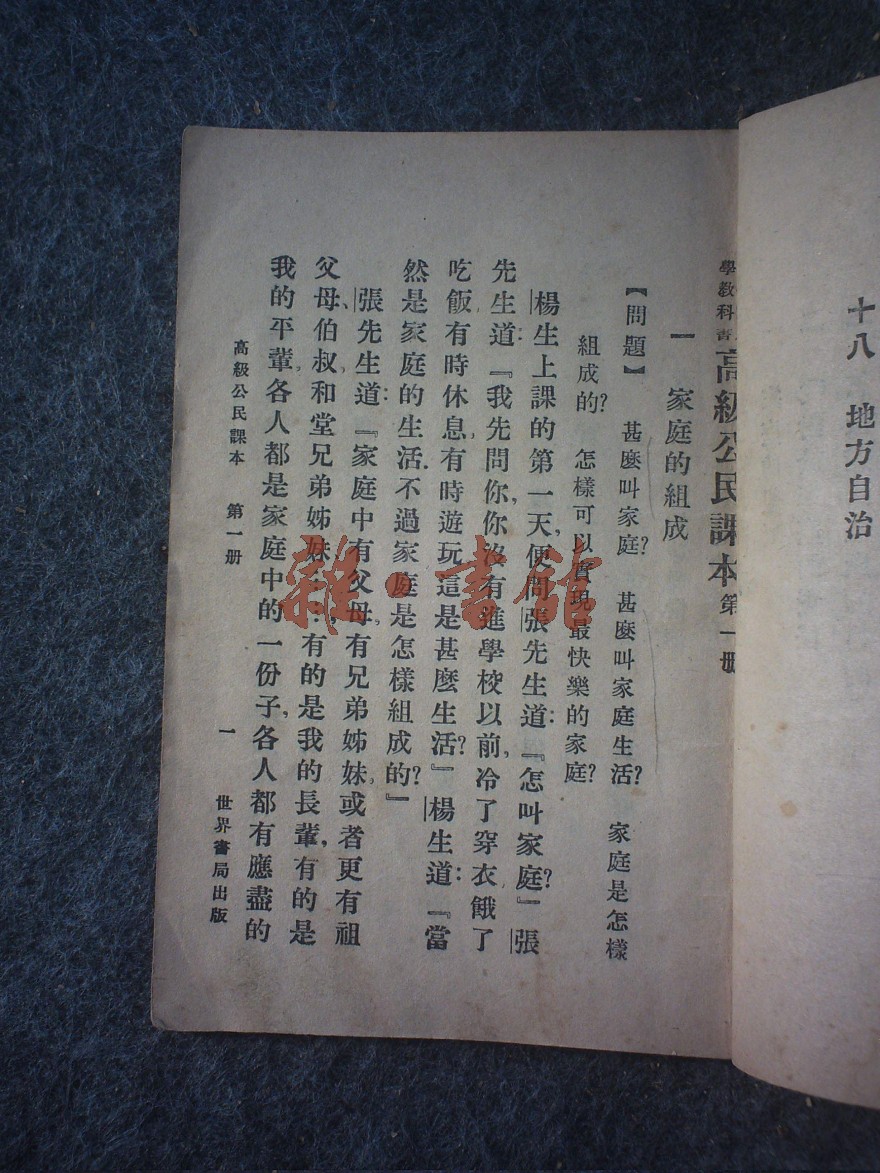 十八　地方自治
學教科書 高級公民課本 第一册
一　家庭的組成
【問題】　甚麼叫家庭？　甚麼叫家庭生活？　家庭是怎樣
組成的？　怎樣可以實現最快樂的家庭？
楊生上課的第一天，便問張先生道：『怎叫家庭？』張
先生道：『我先問你，你沒有進學校以前，冷了穿衣餓了
吃飯有時休息，有時遊玩這是甚麼生活？』楊生道：『當
然是家庭的生活．不過家庭是怎樣組成的？』
張先生道：『家庭中有父母，有兄弟姊妹，或者更有祖
父母、伯叔，和堂兄弟姊妹…：有的是我的長輩，有的是
我的平輩，各人都是家庭中的一份子，各人都有應盡的
高級公民課本　第一册　一　世界書局出版
雜·書館